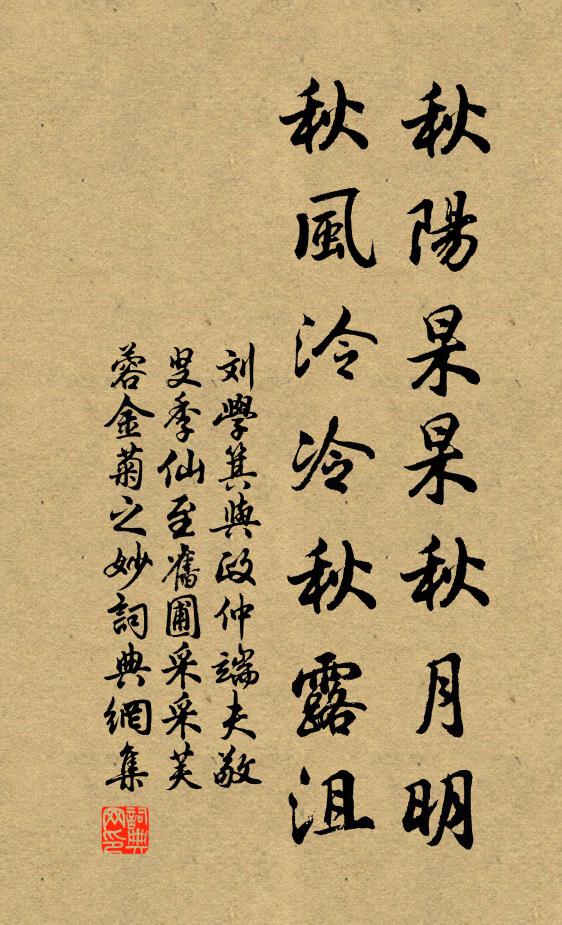 秋陽杲杲秋月明
秋風泠冷秋露沮
刘學箕與政仲端夫敬
叟季仙至舊圃采采芙
蓉金菊之妙詞典網集
詞典网印